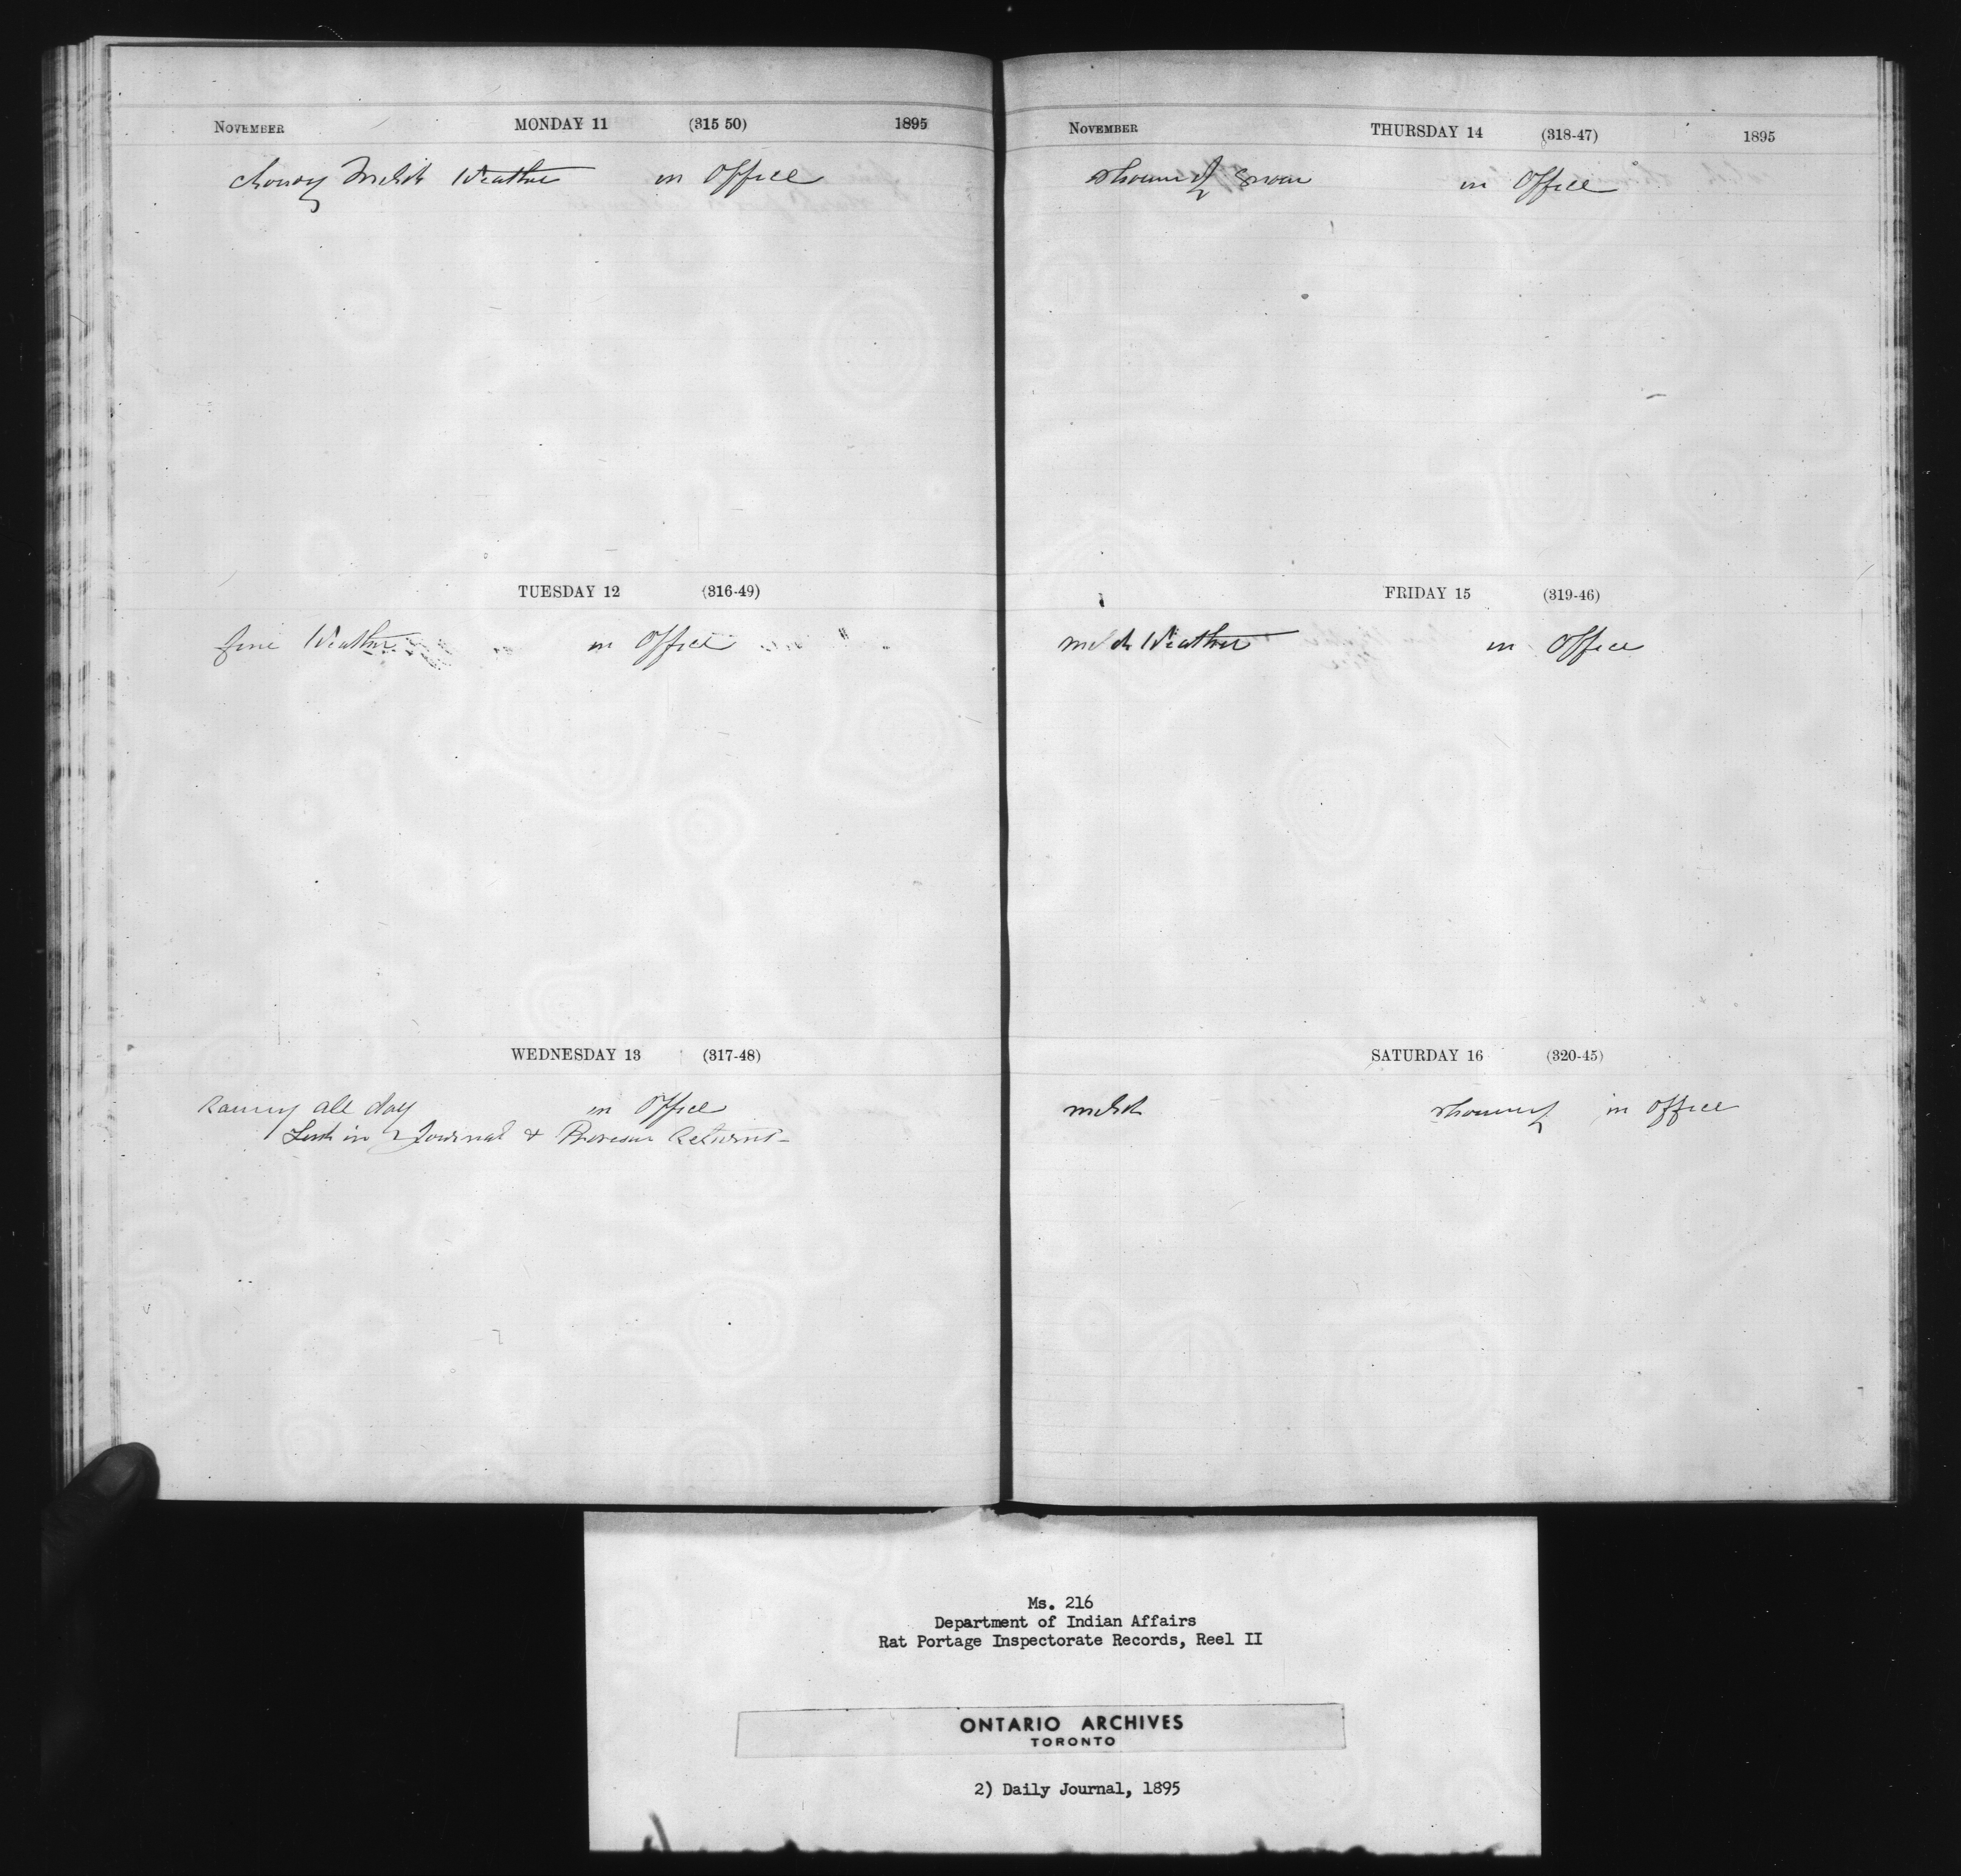 NOVEMBER MONDAY 11 (315 50) 1895
Weather in Office
TUESDAY 12 (316-49)
fine Weather in Office
WEDNESDAY 13 (317-48)
Rainy all day in Office
Sent in Journal & Returns -
NOVEMBER THURSDAY 14 (318-47) 1895
Snow in Office
FRIDAY 15 (319-46)
mild Weather in Office
SATURDAY 16 (320-45)
mild showery in Office
Ms. 216
Department of Indian Affairs
Rat Portage Inspectorate Records, Reel II
ONTARIO ARCHIVES
TORONTO
2) Daily Journal, 1895